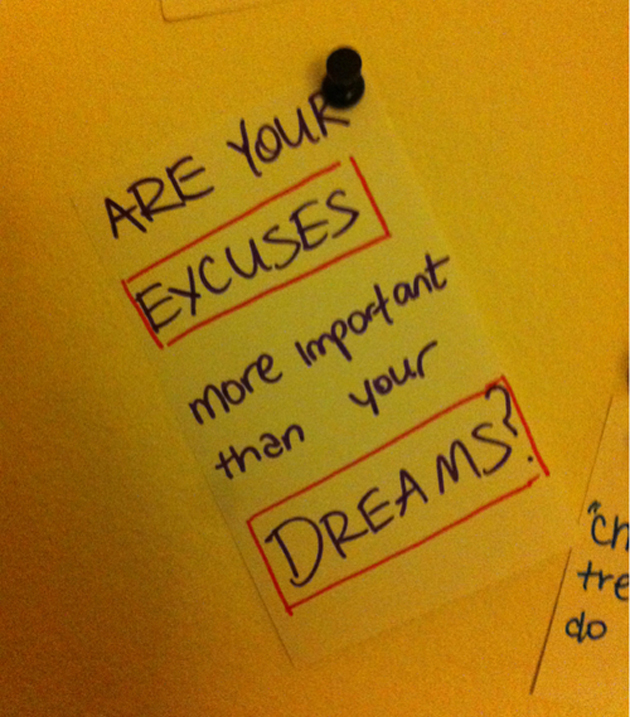 ARE YOUR
EXCUSES
more important
than your
DREAMS?
"ch
tre
do